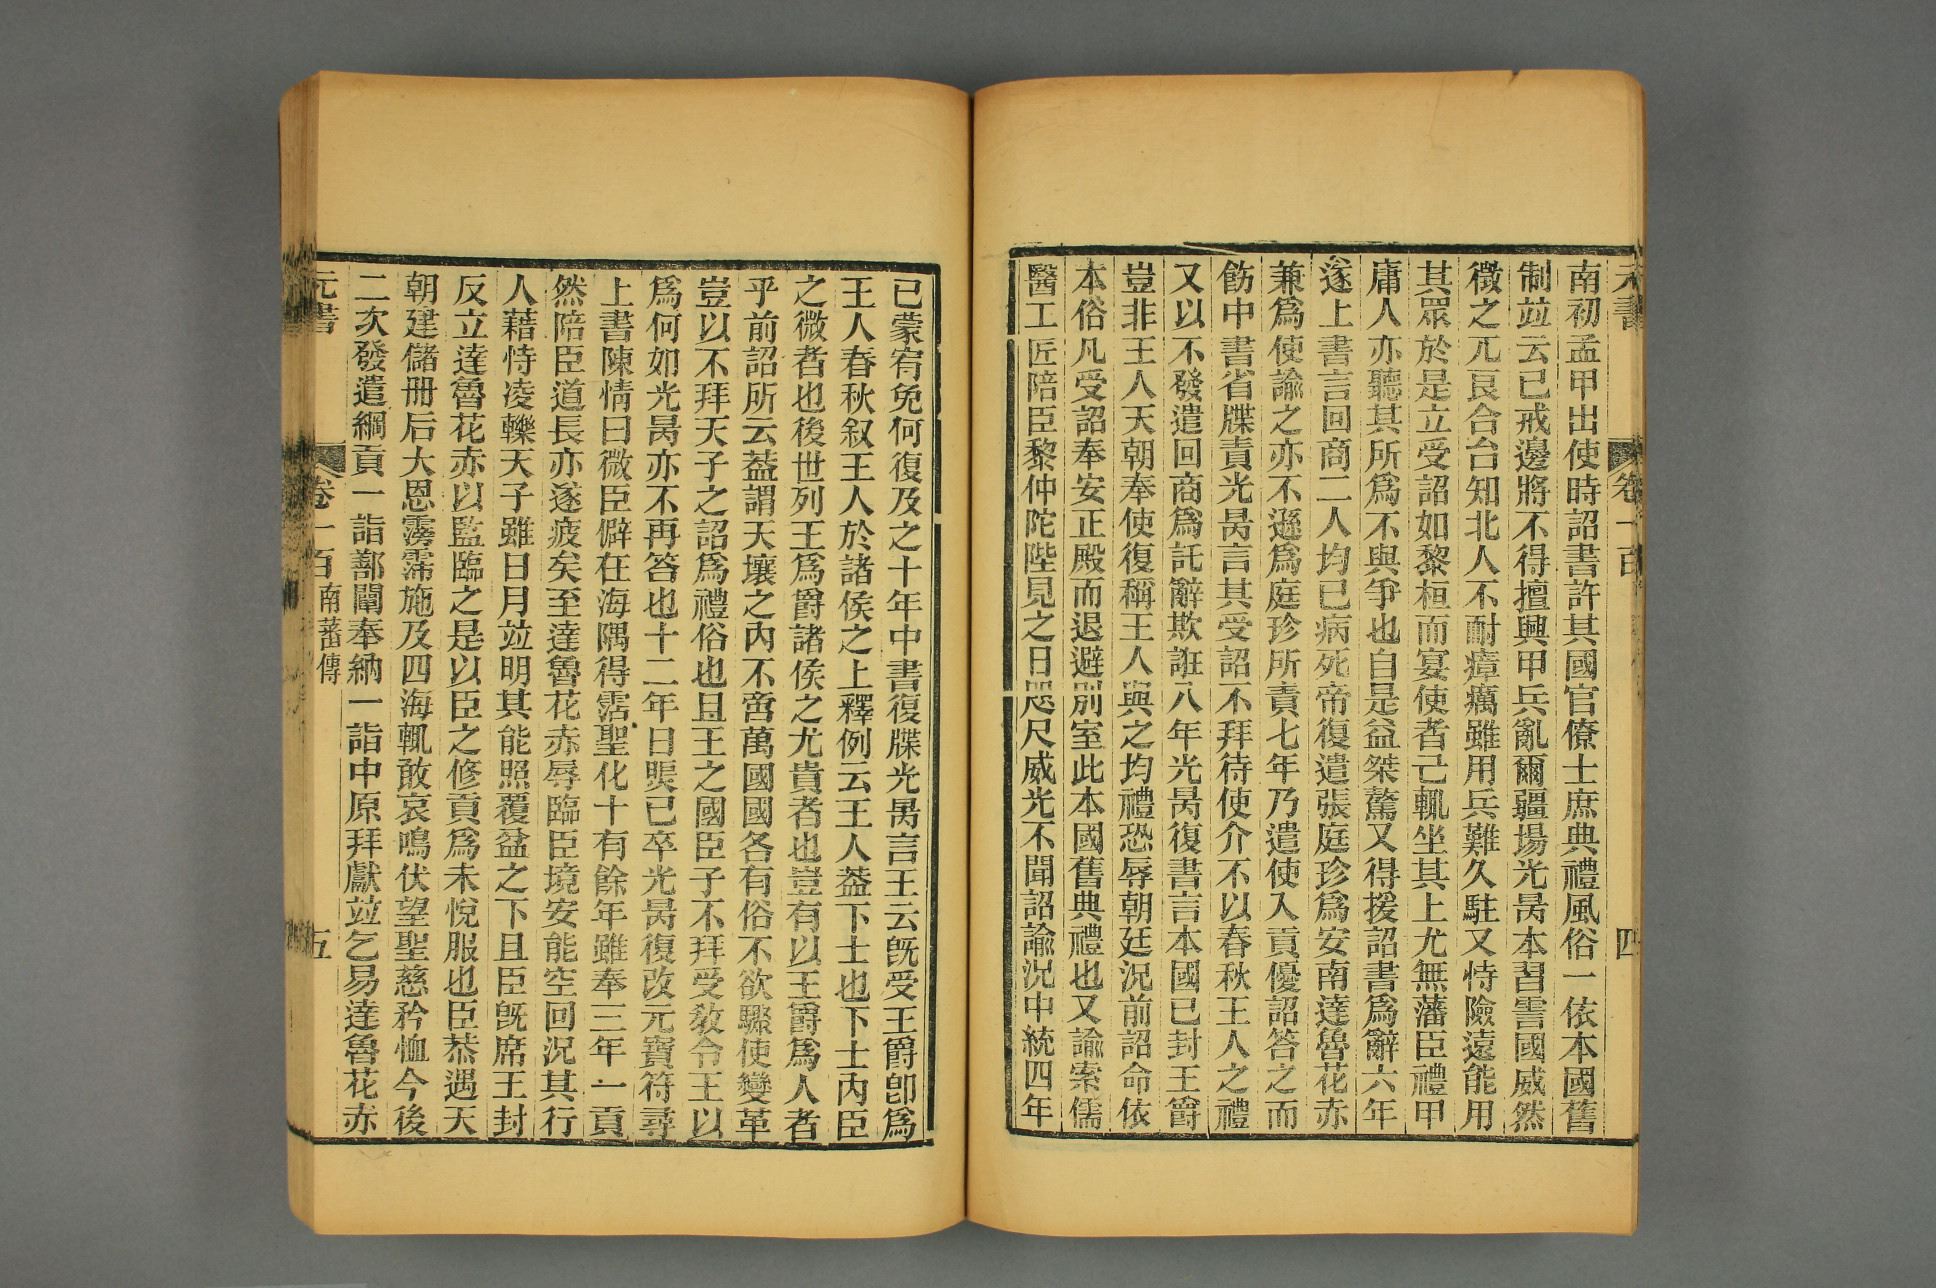 元書
卷一百
四
南初孟甲出使時詔書許其國官僚士庶典禮風俗一依本國舊
制竝云已戒邊將不得擅興甲兵亂爾疆場光昺本習雲國威然
徵之兀良合台知北人不耐瘴癘雖用兵難久駐又恃險遠能用
其眾於是立受詔如黎桓而宴使者己輒坐其上尤無藩臣禮甲
庸人亦聽其所爲不與爭也自是益桀驁又得援詔書爲辭六年
遂上書言回商二人均已病死帝復遣張庭珍爲安南達魯花赤
兼爲使諭之亦不遜爲庭珍所責七年乃遣使入貢優詔答之而
飭中書省牒責光昺言其受詔不拜待使介不以春秋王人之禮
又以不發遣回商爲託辭欺誑八年光昺復書言本國已封王爵
豈非王人天朝奉使復稱王人與之均禮恐辱朝廷況前詔命依
本俗凡受詔奉安正殿而退避別室此本國舊典禮也又諭索儒
醫工匠陪臣黎仲陀陛見之日咫尺威光不聞詔諭況中統四年
已蒙宥免何復及之十年中書復牒光昺言王云旣受王爵卽爲
王人春秋叙王人於諸侯之上釋例云王人葢下士也下士內臣
之微者也後世列王爲爵諸侯之尤貴者也豈有以王爵爲人者
乎前詔所云葢謂天壤之內不啻萬國國各有俗不欲驟使變革
豈以不拜天子之詔爲禮俗也且王之國臣子不拜受敎令王以
爲何如光昺亦不再答也十二年日烜已卒光昺復改元寶符尋
上書陳情曰微臣僻在海隅得霑聖化十有餘年雖奉三年一貢
然陪臣道長亦遂疲矣至達魯花赤辱臨臣境安能空回況其行
人藉恃凌轢天子雖日月竝明其能照覆盆之下且臣旣席王封
反立達魯花赤以監臨之是以臣之修貢爲未悅服也臣恭遇天
朝建儲冊后大恩霶霈施及四海輒敢哀鳴伏望聖慈矜恤今後
二次發遣綱貢一詣鄯闡奉納一詣中原拜獻竝乞易達魯花赤
元書
卷一百
南蕃傳
五